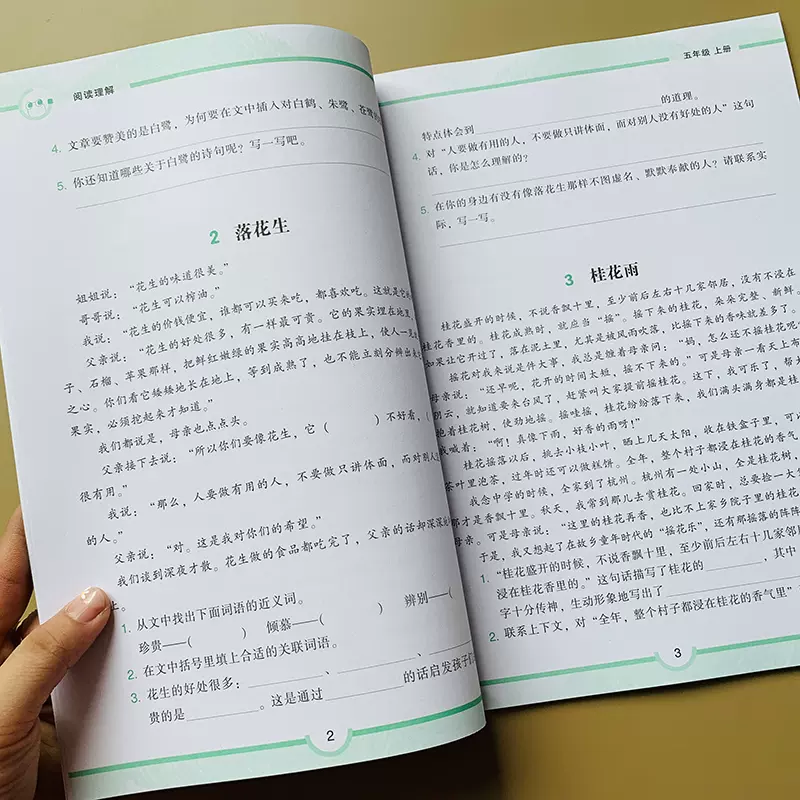 阅读理解
4. 文章要赞美的是白鹭，为何要在文中插入对白鹤、朱鹭、苍鹭
5. 你还知道哪些关于白鹭的诗句呢？写一写吧。
2 落花生
姐姐说：“花生的味道很美。”
哥哥说：“花生可以榨油。”
我说：“花生的价钱便宜，谁都可以买来吃，都喜欢吃。这就是它的
父亲说：“花生的好处很多，有一样最可贵。它的果实埋在地里，
子、石榴、苹果那样，把鲜红嫩绿的果实高高地挂在枝上，使人一见
之心。你们看它矮矮地长在地上，等到成熟了，也不能立刻分辨出来
果实，必须挖起来才知道。”
我们都说是，母亲也点点头。
父亲接下去说：“所以你们要像花生，它（ ）不好看，（
很有用。”
我说：“那么，人要做有用的人，不要做只讲体面，而对别人
的人。”
父亲说：“对。这是我对你们的希望。”
我们谈到深夜才散。花生做的食品都吃完了，父亲的话却深深
上。
1. 从文中找出下面词语的近义词。
珍贵——（ ） 倾慕——（ ） 辨别——（
2. 在文中括号里填上合适的关联词语。
3. 花生的好处很多：、、
贵的是。这是通过的话启发孩子们
2
五年级 上册
特点体会到的道理。
4. 对“人要做有用的人，不要做只讲体面，而对别人没有好处的人”这句
话，你是怎么理解的？
5. 在你的身边有没有像落花生那样不图虚名、默默奉献的人？请联系实
际，写一写。
3 桂花雨
桂花盛开的时候，不说香飘十里，至少前后左右十几家邻居，没有不浸在
桂花香里的。桂花成熟时，就应当“摇”。摇下来的桂花，朵朵完整、新鲜。
如果让它开过了，落在泥土里，尤其是被风雨吹落，比摇下来的香味就差多了。
摇花对我来说是件大事，我总是缠着母亲问：“妈，怎么还不摇桂花呢
母亲说：“还早呢，花开的时间太短，摇不下来的。”可是母亲一看天上布
阴云，就知道要来台风了，赶紧叫大家提前摇桂花。这下，我可乐了，帮大
抱着桂花树，使劲地摇。摇哇摇，桂花纷纷落下来，我们满头满身都是桂
我喊着：“啊！真像下雨，好香的雨呀！”
桂花摇落以后，挑去小枝小叶，晒上几天太阳，收在铁盒子里，可以
茶叶里泡茶，过年时还可以做糕饼。全年，整个村子都浸在桂花的香气
我念中学的时候，全家到了杭州。杭州有一处小山，全是桂花树，
那才是香飘十里。秋天，我常到那儿去赏桂花。回家时，总要捡一大
母亲。可是母亲说：“这里的桂花再香，也比不上家乡院子里的桂花
于是，我又想起了在故乡童年时代的“摇花乐”，还有那摇落的阵阵
1. “桂花盛开的时候，不说香飘十里，至少前后左右十几家邻居
浸在桂花香里的。”这句话描写了桂花的，其中
字十分传神，生动形象地写出了
2. 联系上下文，对“全年，整个村子都浸在桂花的香气里”
3